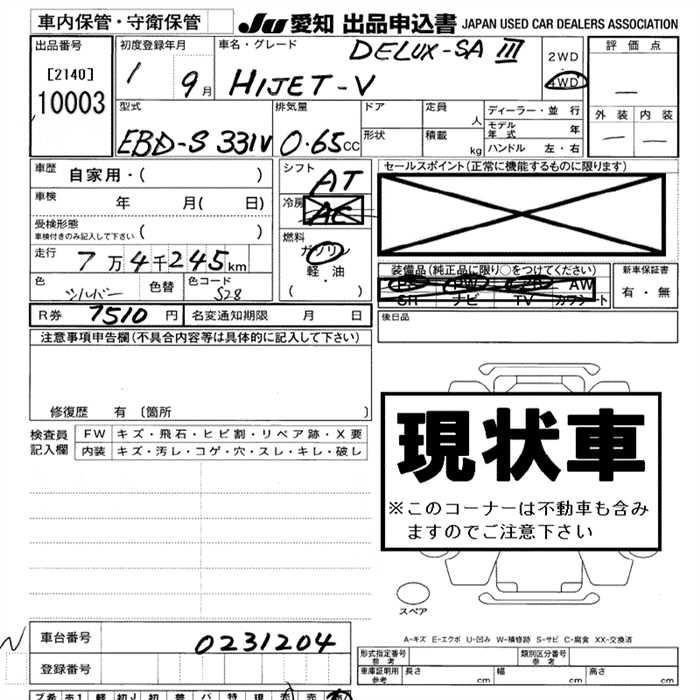 車内保管・守衛保管
JU 愛知 出品申込書 JAPAN USED CAR DEALERS ASSOCIATION
出品番号
[2140]
10003
初度登録年月
1 9月
車名・グレード
DELUX-SA III
HIJET-V
2WD
・
4WD
評価点
―
外装 内装
― ―
型式
EBD-S 331V
排気量
0.65cc
ドア
形状
定員 人
積載 kg
ディーラー・並行
モデル年式 年
ハンドル 左・右
車歴
自家用・( )
車検
年 月( 日)
受検形態
車検付きのみ記入して下さい
( )
走行
7万4千245km
色
シルバー
色替
色コード
S28
シフト
AT
冷房
AC
燃料
ガソリン
・
軽油
・
( )
セールスポイント(正常に機能するものに限ります)
装備品(純正品に限り○をつけてください)
PS PW AW
SR ナビ TV カワシート
新車保証書
有・無
後日品
R券 7510円
名変通知期限 月 日
注意事項申告欄(不具合内容等は具体的に記入して下さい)
修復歴 有〔箇所 〕
検査員
記入欄
FW キズ・飛石・ヒビ割・リペア跡・X要
内装 キズ・汚レ・コゲ・穴・スレ・キレ・破レ
現状車
※このコーナーは不動車も含み
ますのでご注意下さい
スペア
A-キズ E-エクボ U-凹み W-補修跡 S-サビ C-腐食 XX-交換済
車台番号
0231204
登録番号
形式指定番号
参考
類別区分番号
参考
車庫証明用
参考
長さ cm 幅 cm 高さ cm